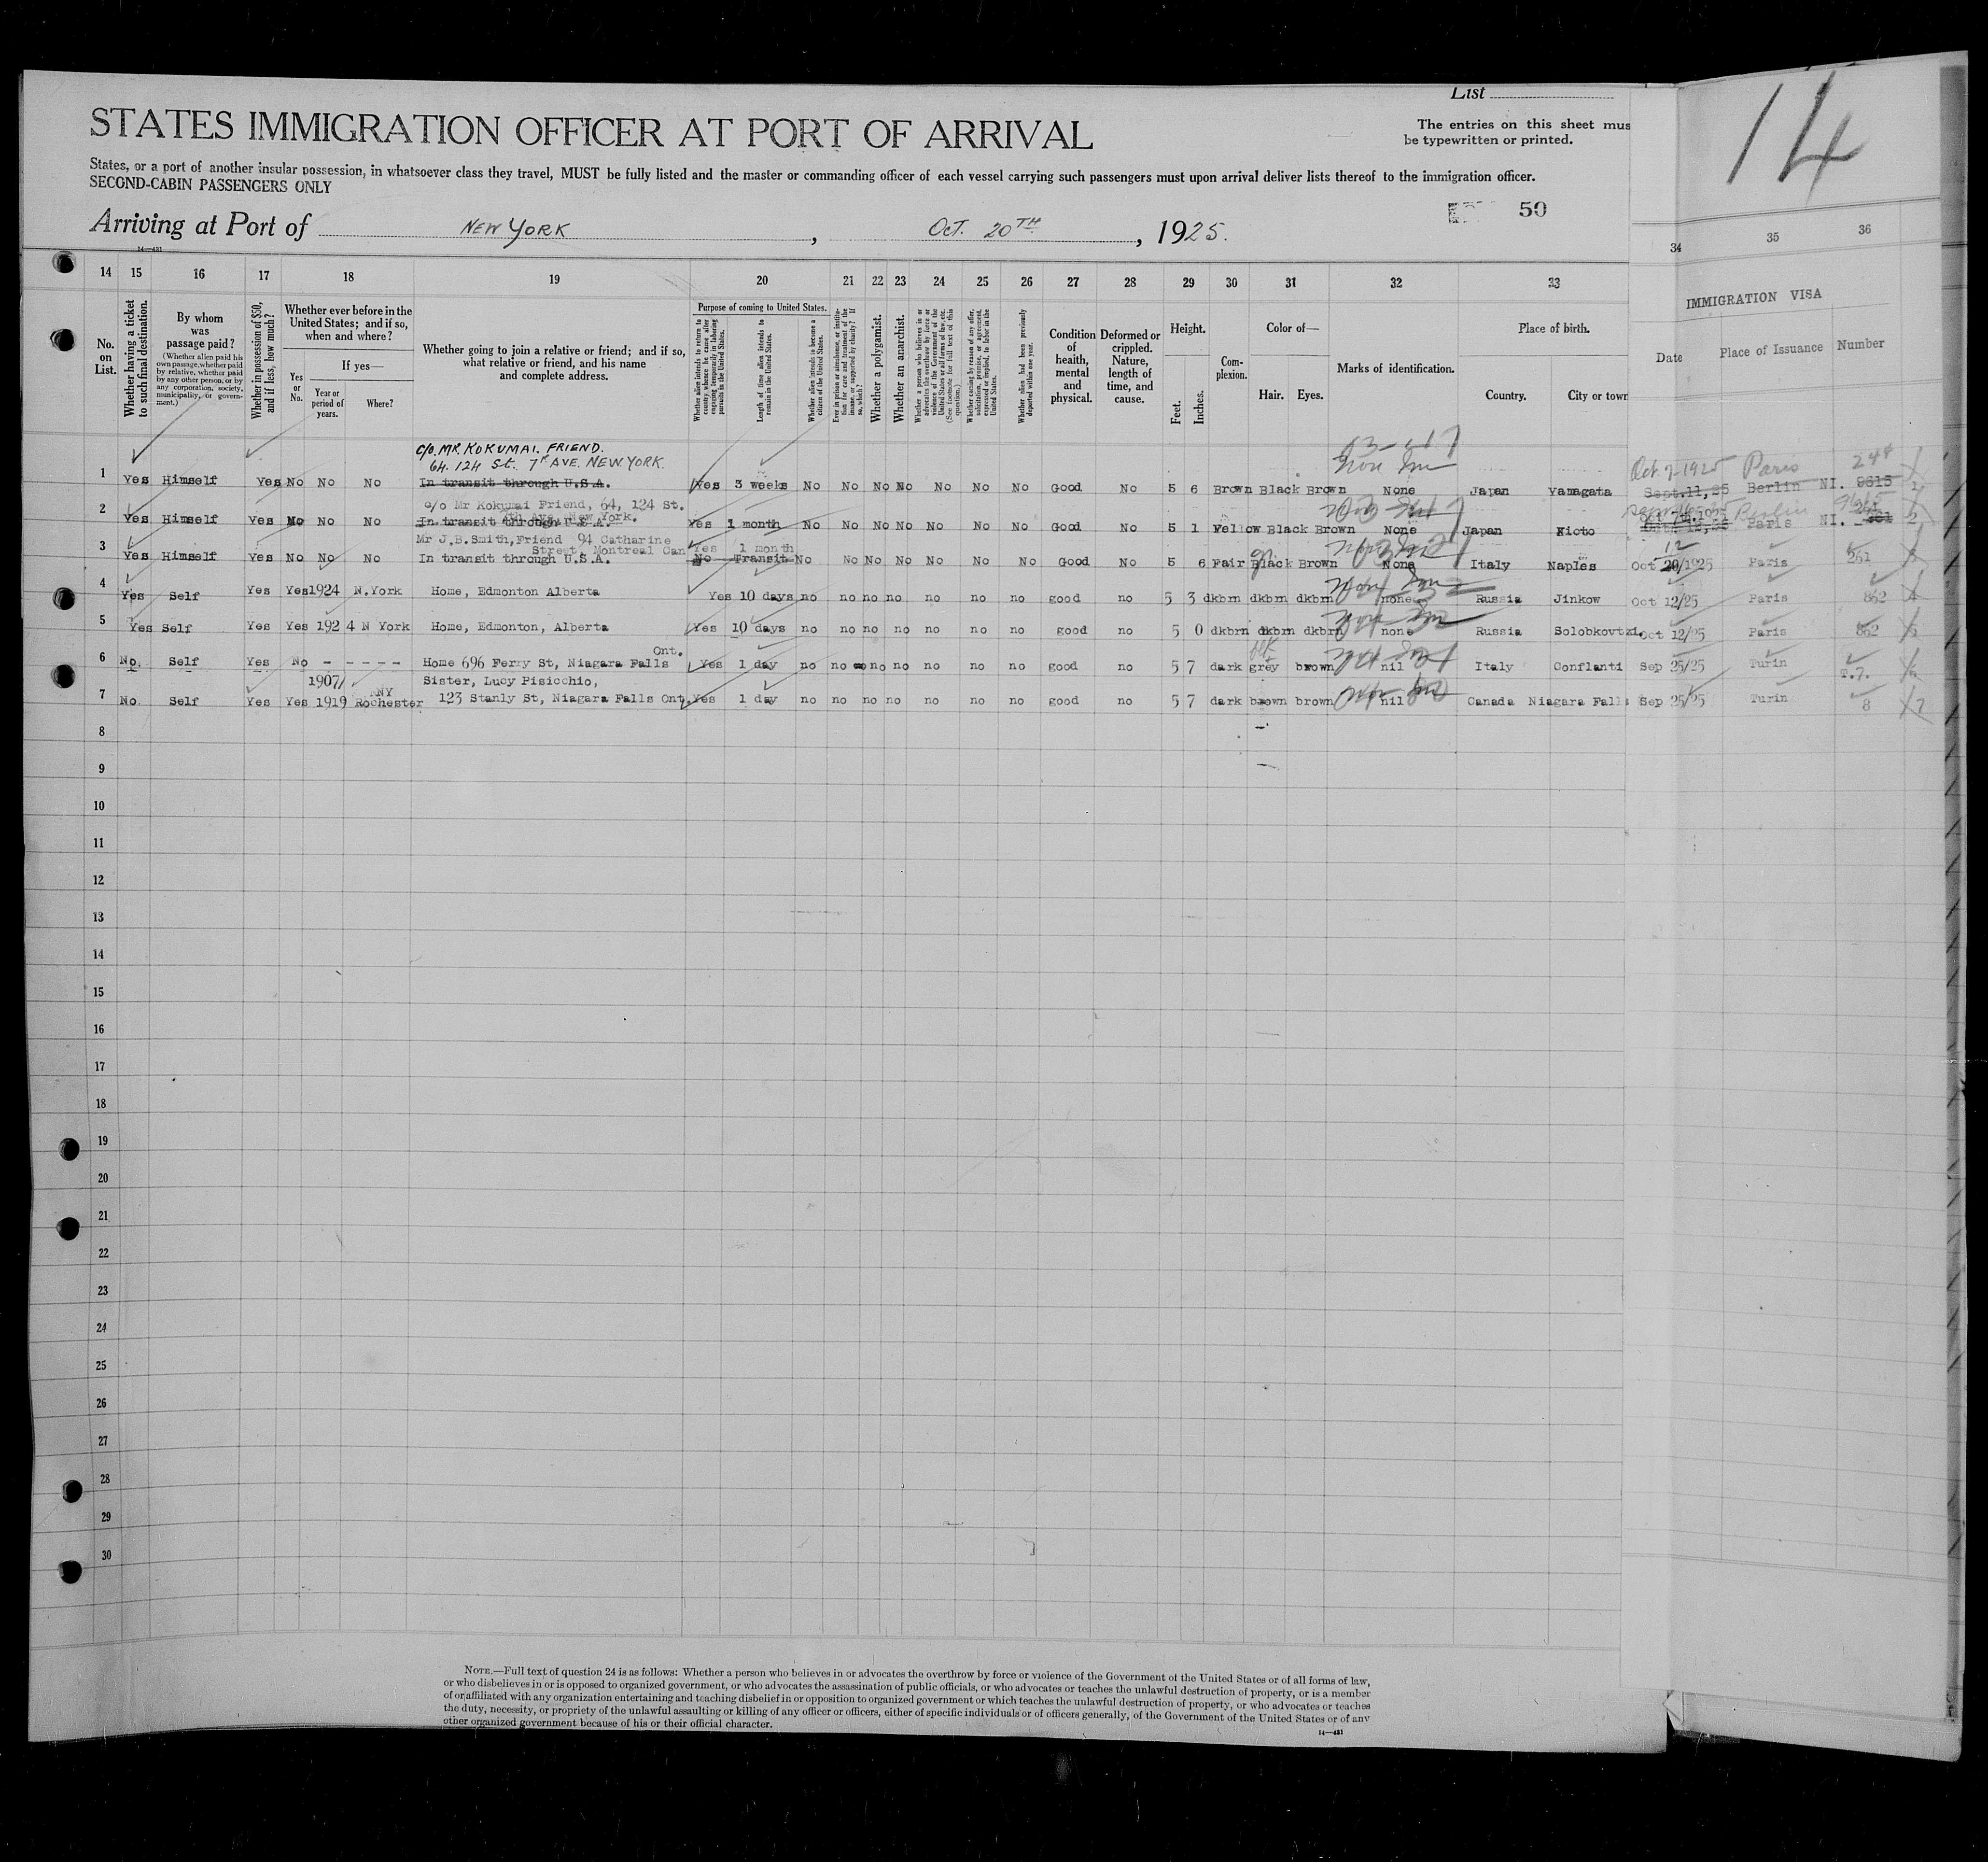 List
14
STATES IMMIGRATION OFFICER AT PORT OF ARRIVAL
The entries on this sheet mus
be typewritten or printed.
States, or a port of another insular possession, in whatsoever class they travel, MUST be fully listed and the master or commanding officer of each vessel carrying such passengers must upon arrival deliver lists thereof to the immigration officer.
SECOND-CABIN PASSENGERS ONLY
50
Arriving at Port of NEW YORK, OCT. 20TH, 1925.
14—431
14 15 16 17 18 19 20 21 22 23 24 25 26 27 28 29 30 31 32 33 34 35 36
No. on List.
Whether having a ticket to such final destination.
By whom was passage paid?
(Whether alien paid his own passage, whether paid by relative, whether paid by any other person, or by any corporation, society, municipality, or government.)
Whether in possession of $50, and if less, how much?
Whether ever before in the United States; and if so, when and where?
Yes or No.
If yes—
Year or period of years.
Where?
Whether going to join a relative or friend; and if so, what relative or friend, and his name and complete address.
Purpose of coming to United States.
Whether alien intends to return to country whence he came after engaging temporarily in laboring pursuits in the United States.
Length of time alien intends to remain in the United States.
Whether alien intends to become a citizen of the United States.
Ever in prison or almshouse, or institution for care and treatment of the insane, or supported by charity? If so, which?
Whether a polygamist.
Whether an anarchist.
Whether a person who believes in or advocates the overthrow by force or violence of the Government of the United States or all forms of law, etc. (See footnote for full text of this question.)
Whether coming by reason of any offer, solicitation, promise, or agreement, expressed or implied, to labor in the United States.
Whether alien had been previously deported within one year.
Condition of health, mental and physical.
Deformed or crippled. Nature, length of time, and cause.
Height.
Feet.
Inches.
Complexion.
Color of—
Hair.
Eyes.
Marks of identification.
Place of birth.
Country.
City or town
IMMIGRATION VISA
Date
Place of Issuance
Number
C/O. MR. KOKUMAI. FRIEND.
64. 124 St. 7th AVE. NEW YORK.
Non Im
Oct. 7-1925 Paris 244
1 Yes Himself Yes No No No In transit through U.S.A. Yes 3 weeks No No No No No No No Good No 5 6 Brown Black Brown None Japan Yamagata Sept.11,25 Berlin NI. 9615 1
c/o Mr Kokumai Friend, 64, 124 St.
7th Ave, New York.
Berlin 9615
2 Yes Himself Yes No No No In transit through U.S.A. Yes 1 month No No No No No No No Good No 5 1 Yellow Black Brown None Japan Kioto Paris NI. 2
Mr J.B.Smith, Friend 94 Catharine
Street, Montreal Can Yes 1 month
3 Yes Himself Yes No No No In transit through U.S.A. No Transit No No No No No No No Good No 5 6 Fair Black Brown None Italy Naples Oct 20/1925 Paris 261
12
4 Yes Self Yes Yes 1924 N.York Home, Edmonton Alberta Yes 10 days no no no no no no no good no 5 3 dkbrn dkbrn dkbrn none Russia Jinkow Oct 12/25 Paris 862 4
5 Yes Self Yes Yes 1924 N York Home, Edmonton, Alberta Yes 10 days no no no no no no no good no 5 0 dkbrn dkbrn dkbrn none Russia Solobkovtzi. Oct 12/25 Paris 862 5
Ont.
6 No. Self Yes No - - - - - Home 696 Ferry St, Niagara Falls Yes 1 day no no no no no no no good no 5 7 dark grey brown nil Italy Conflanti Sep 25/25 Turin T.7.
blk
1907/ NY Sister, Lucy Pisicchio,
7 No. Self Yes Yes 1919 Rochester 123 Stanly St, Niagara Falls Ont. Yes 1 day no no no no no no no good no 5 7 dark brown brown nil Canada Niagara Falls Sep 25/25 Turin 8 7
8
9
10
11
12
13
14
15
16
17
18
19
20
21
22
23
24
25
26
27
28
29
30
NOTE.—Full text of question 24 is as follows: Whether a person who believes in or advocates the overthrow by force or violence of the Government of the United States or of all forms of law,
or who disbelieves in or is opposed to organized government, or who advocates the assassination of public officials, or who advocates or teaches the unlawful destruction of property, or is a member
of or affiliated with any organization entertaining and teaching disbelief in or opposition to organized government or which teaches the unlawful destruction of property, or who advocates or teaches
the duty, necessity, or propriety of the unlawful assaulting or killing of any officer or officers, either of specific individuals or of officers generally, of the Government of the United States or of any
other organized government because of his or their official character.
14—431